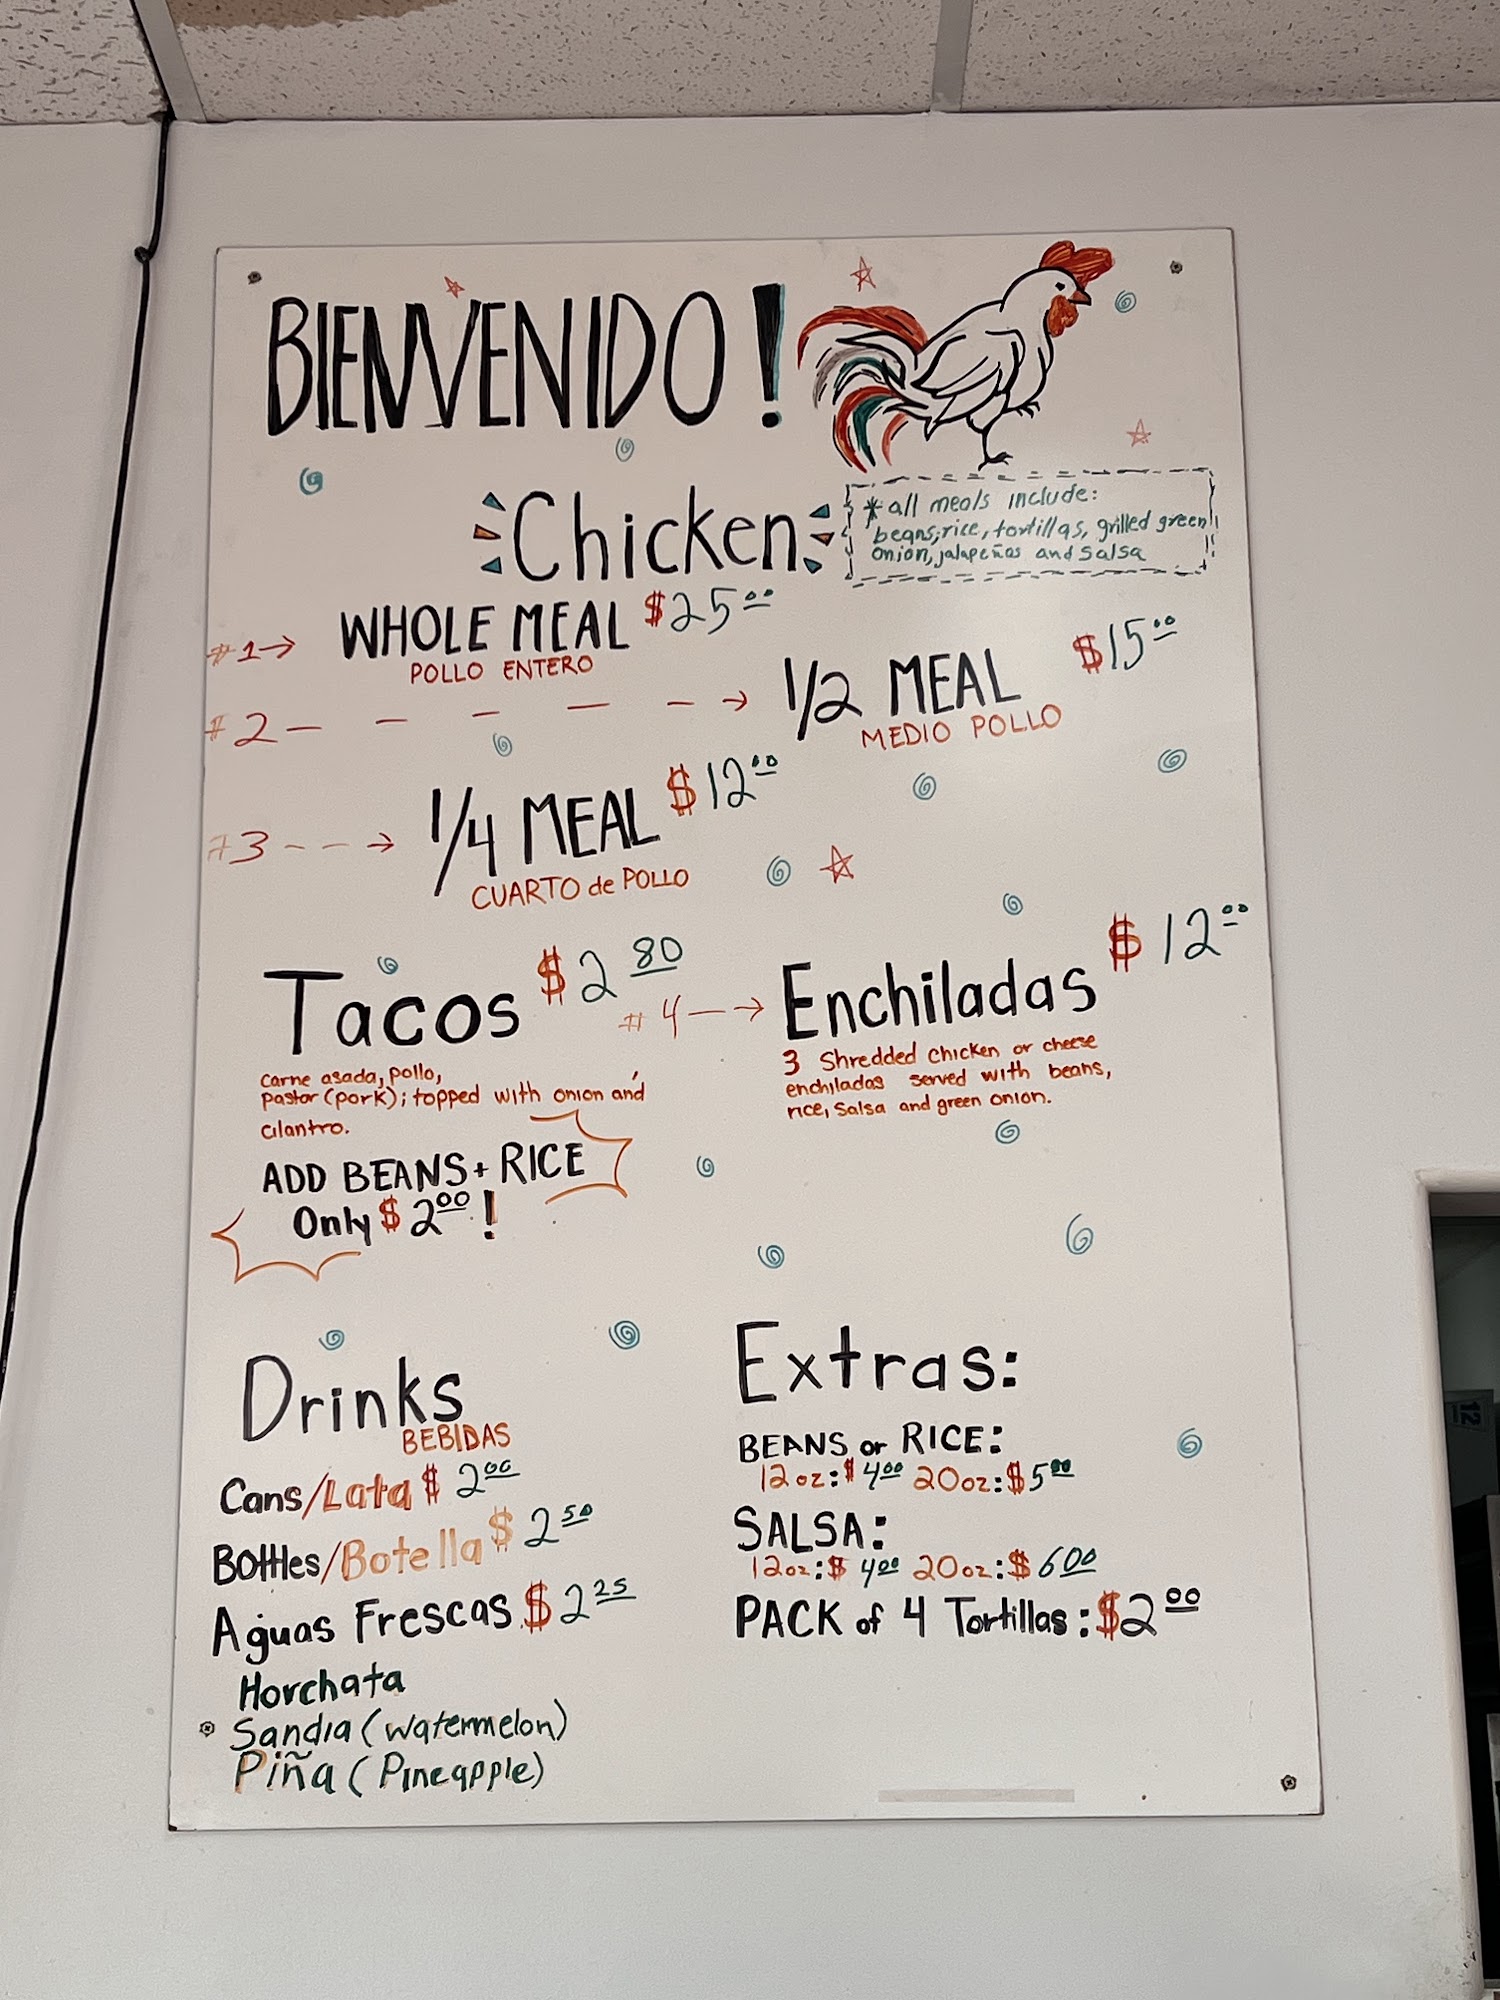 BIENVENIDO!
Chicken
* all meals include:
beans, rice, tortillas, grilled green
onion, jalapeños and salsa
#1→ WHOLE MEAL $25.00
POLLO ENTERO
#2 – – – – –→ 1/2 MEAL $15.00
MEDIO POLLO
#3 – – –→ 1/4 MEAL $12.00
CUARTO de POLLO
Tacos $2 80
carne asada, pollo,
pastor (pork); topped with onion and
cilantro.
ADD BEANS + RICE
Only $2.00!
#4 – –→ Enchiladas $12.00
3 Shredded chicken or cheese
enchiladas served with beans,
rice, salsa and green onion.
Drinks
BEBIDAS
Cans/Lata $2.00
Bottles/Botella $2 50
Aguas Frescas $2 25
Horchata
Sandia (watermelon)
Piña (Pineapple)
Extras:
BEANS or RICE:
12oz: $4.00 20oz: $5.00
SALSA:
12oz: $4.00 20oz: $6.00
PACK of 4 Tortillas: $2.00
12